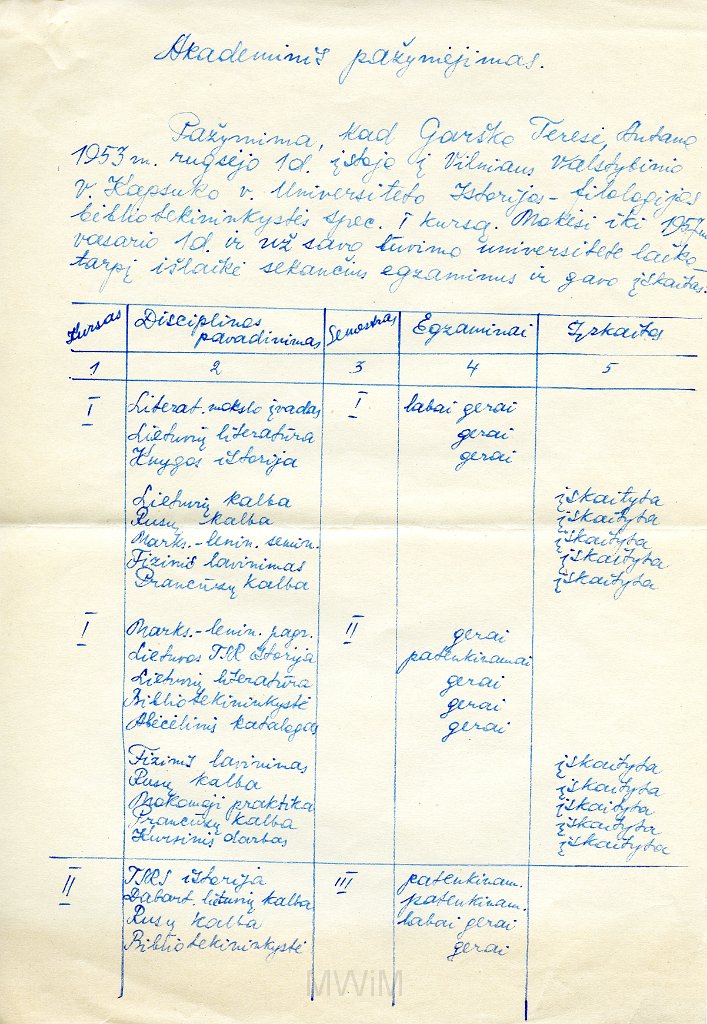 Akademinis pažymėjimas.
Pažymima, kad Garško Teresė, Antano
1953 m. rugsėjo 1 d. įstojo į Vilniaus Valstybinio
v. Kapsuko v. Universiteto Istorijos-filologijos
bibliotekininkystės spec. I kursą. Mokėsi iki 1957 m
vasario 1 d. ir už savo buvimo universitete laiko-
tarpį išlaikė sekančius egzaminus ir gavo įskaitas.
Kursas Disciplinos pavadinimas Semestras Egzaminai Įskaitos
1 2 3 4 5
I Literat. mokslo įvadas I labai gerai
Lietuvių literatūra gerai
Knygos istorija gerai
Lietuvių kalba įskaityta
Rusų kalba įskaityta
Marks.-lenin. semin. įskaityta
Fizinis lavinimas įskaityta
Prancūzų kalba įskaityta
I Marks.-lenin. pagr. II gerai
Lietuvos TSR istorija patenkinamai
Lietuvių literatūra gerai
Bibliotekininkystė gerai
Abėcėlinis katalogas gerai
Fizinis lavinimas įskaityta
Rusų kalba įskaityta
Mokomoji praktika įskaityta
Prancūzų kalba įskaityta
Kursinis darbas įskaityta
II TSRS istorija III patenkinam.
Dabart. lietuvių kalba patenkinam.
Rusų kalba labai gerai
Bibliotekininkystė gerai
MWiM